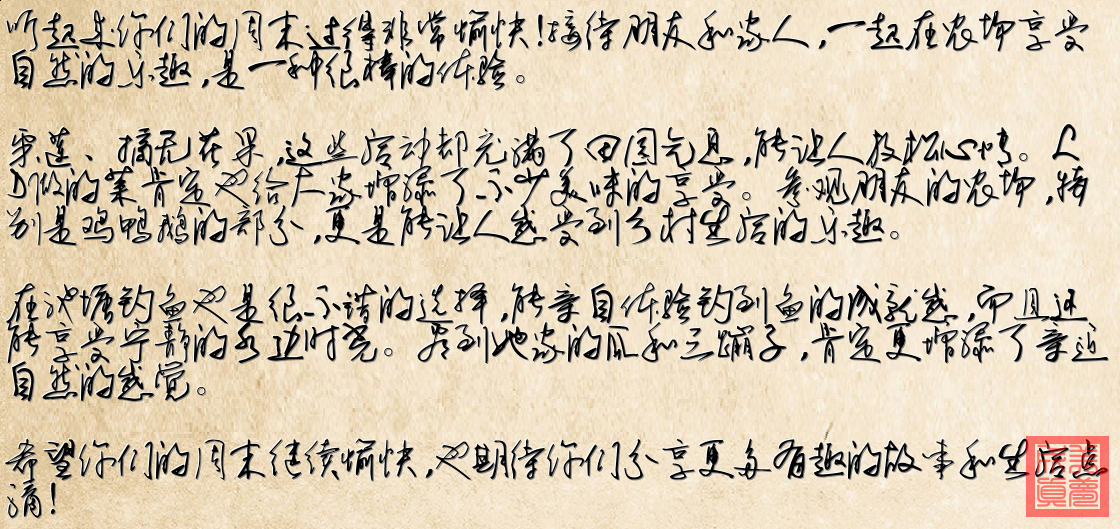 听起来你们的周末过得非常愉快!接待朋友和家人,一起在农场享受
自然的乐趣,是一种很棒的体验。
采莲、摘无花果,这些活动却充满了田园气息,能让人放松心情。L
D做的菜肯定也给大家增添了不少美味的享受。参观朋友的农场,特
别是鸡鸭鹅的部分,更是能让人感受到乡村生活的乐趣。
在池塘钓鱼也是很不错的选择,能亲自体验钓到鱼的成就感,而且还
能享受宁静的水边时光。看到她家的瓜和三蹦子,肯定更增添了亲近
自然的感觉。
希望你们的周末继续愉快,也期待你们分享更多有趣的故事和生活点
滴!